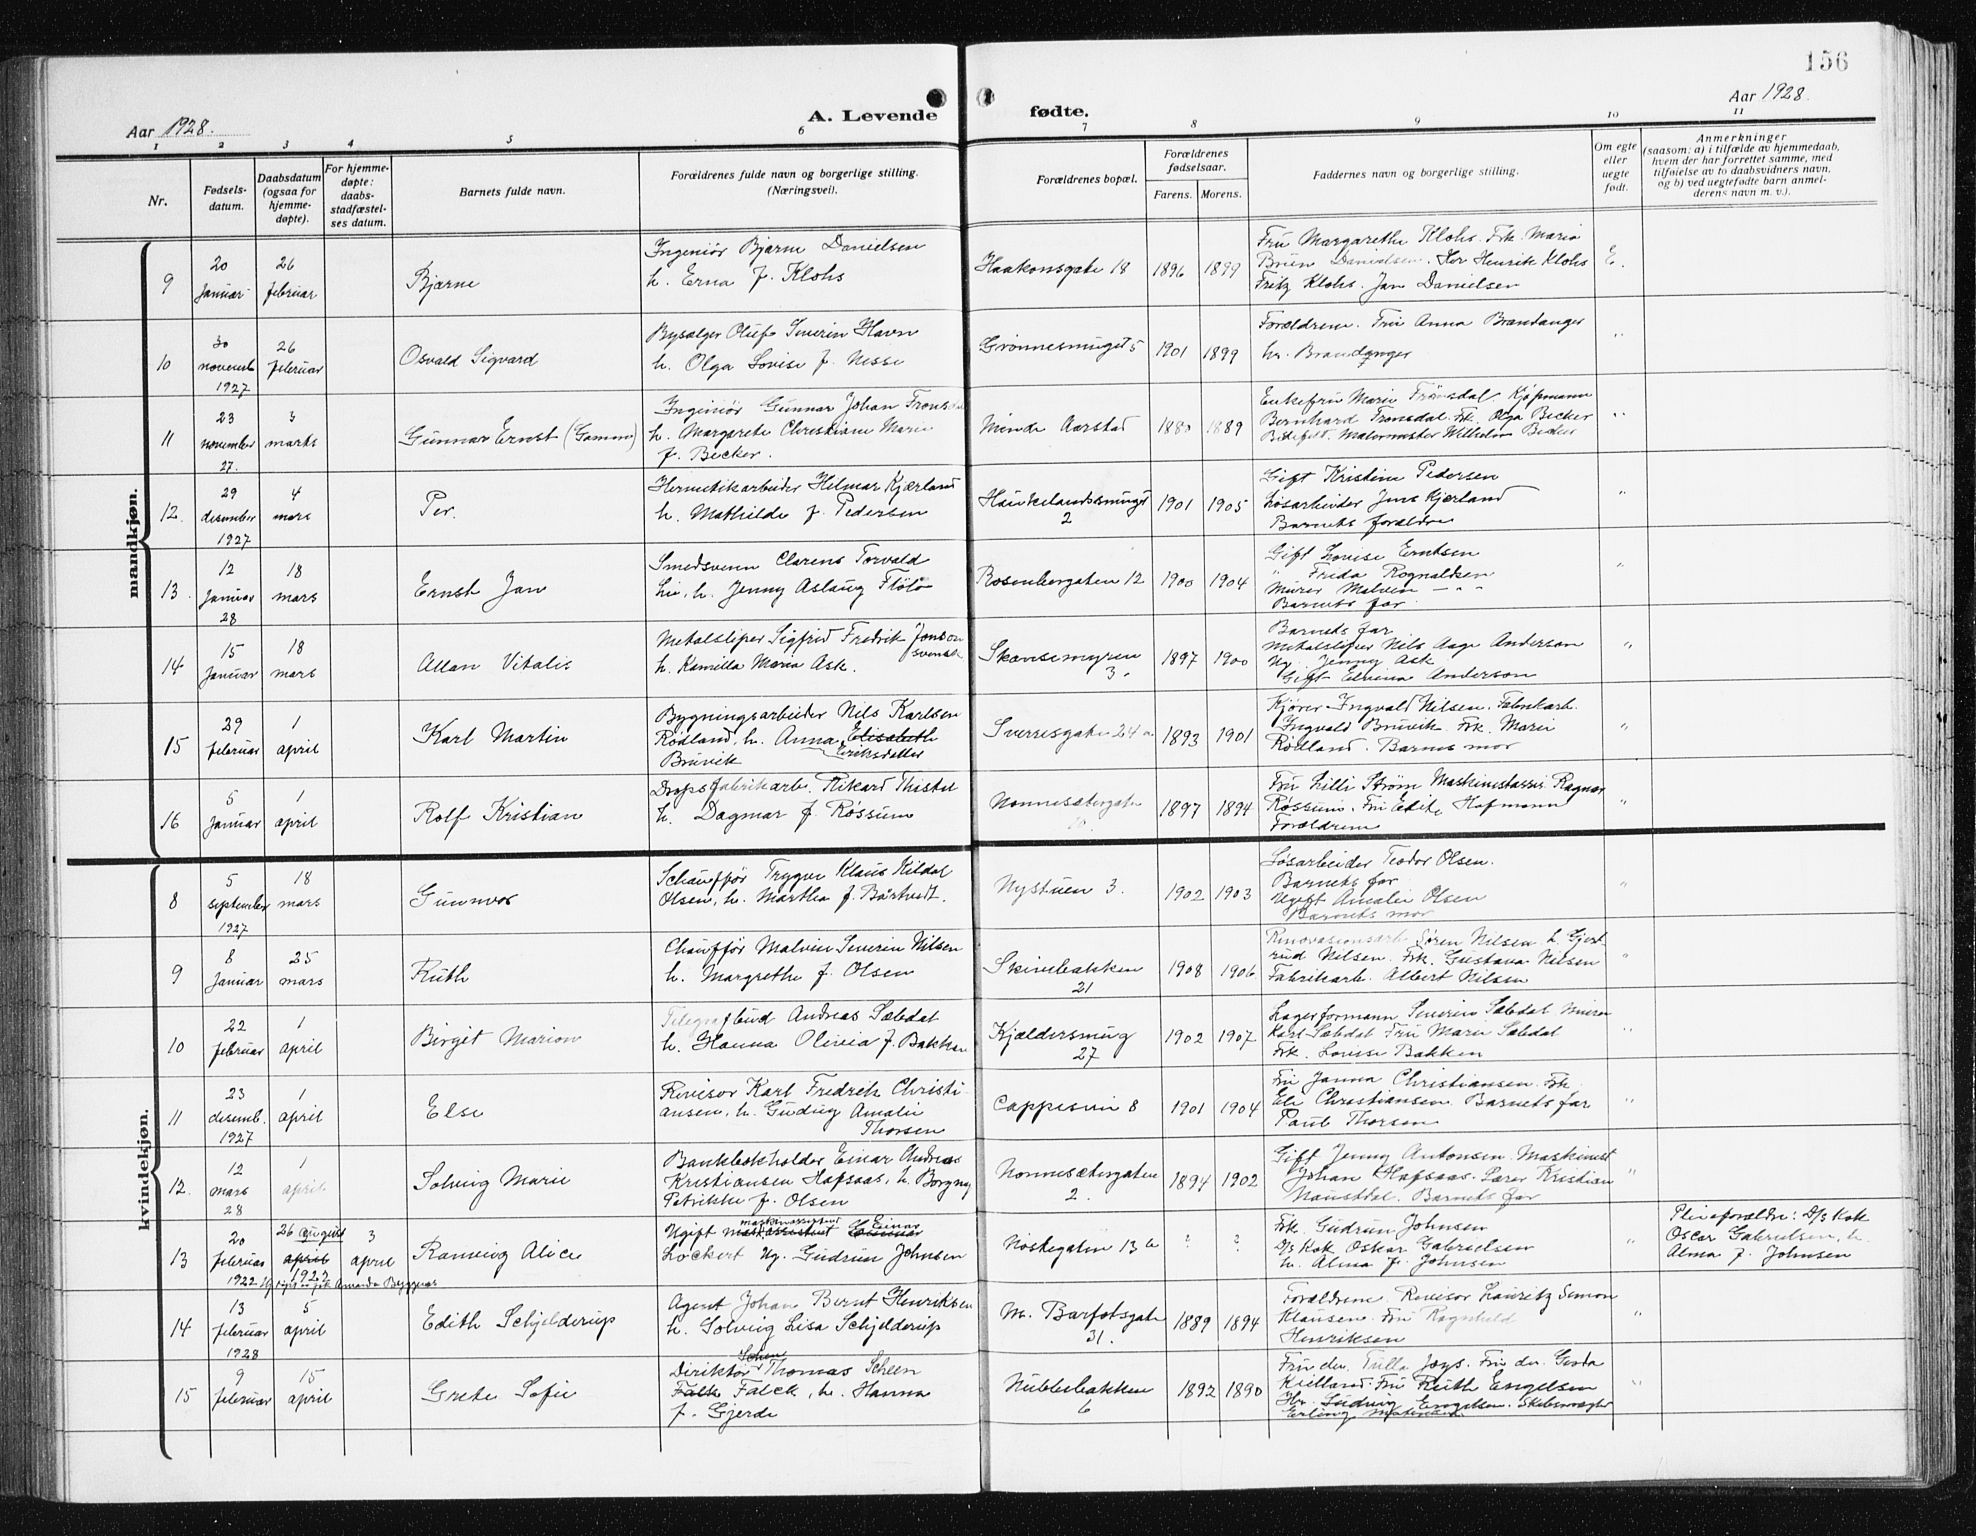 156
Aar 1928.
A. Levende fødte.
Aar 1928.
1 2 3 4 5 6 7 8 9 10 11
Nr.
Fødsels-
datum.
Daabsdatum
(ogsaa for
hjemme-
døpte).
For hjemme-
døpte:
daabs-
stadfæstel-
ses datum.
Barnets fulde navn.
Forældrenes fulde navn og borgerlige stilling.
(Næringsvei).
Forældrenes bopæl.
Forældrenes
fødselsaar.
Farens. Morens.
Faddernes navn og borgerlige stilling.
Om egte
eller
uegte
født.
Anmerkninger
(saasom: a) i tilfælde av hjemmedaab,
hvem der har forrettet samme, med
tilføielse av to daabsvidners navn,
og b) ved uegtefødte barn anmel-
derens navn m. v.).
mandkjøn.
9
20
Januar
26
februar
Bjarne
Ingeniør Bjarne Danielsen
h. Erna f. Klohs
Haakonsgate 18
1896 1899
Fru Margarethe Klohs. Frk. Maria
Brun Danielsen. Her Henrik Klohs
Fritz Klohs. Jan Danielsen
E.
10
30
novemb
1927
26
februar
Osvald Sigvard
Bysælger Oluf Severin Havn
h. Olga Lovise f. Nesse
Grønnesmuget 5
1901 1899
Forældrene. Fru Anna Brandanger
hr. Brandanger
"
11
23
november
27.
3
marts
Gunnar Ernst (Gamme)
Ingeniør Gunnar Johan Tronsdal
h. Margarete Christiane Marie
f. Becker.
Minde Aarstad
1880 1889
Enkefru Marie Tronsdal, Kjøpmann
Bernhard Tronsdal. Frk. Olga Becker
Malermester Wilhelm Becker
"
12.
29
desember
1927
4
mars
Per.
Hermetikarbeider Hilmar Kjærland
h. Mathilde f. Pedersen
Haukelandssmuget
2
1901 1905
Gift Kristine Pedersen
Løsarbeider Jens Kjærland
Barnets forældre
"
13
12
Januar
28
18
mars
Ernst Jan
Smedsvenn Clarens Torvald
Lie, h. Jenny Aslaug Flølo
Rosenbergaten 12
1900 1904
Gift Lovise Erntsen
" Frida Rognaldsen
Murer Malvin — " "
Barnets far
"
14
15
Januar
18
mars
Allan Vitalis
Metalsliper Sigfrid Fredrik Jonson
svensk
h. Kamilla Maria Ask.
Skansemyren
3.
1897 1900
Barnets far
Metalsliper Nils Aage Anderson
Ug. Jenny Ask
Gift Elvina Anderson
"
15
29
februar
1
april
Karl Martin
Bygningsarbeider Nils Karlsen
Rødland, h. Anna Elisabeth
Eriksdatter
Bruvik
Sverresgaten 24 a
1893 1901
Kjører Ingvald Nilsen. Fabrikarb.
Ingvald Bruvik. Frk. Marie
Rødland. Barnes mor
"
16
5
Januar
1
april
Rolf Kristian
Dropsfabrikarb. Rikard Thistel
h. Dagmar f. Røssum
Nonnesætergaten
1897 1894
Fru Lilli Strøm Maskinistassis Ragnar
Røssum. Fru Edit Hofmann
Forældrene
"
kvindekjøn.
8
5
september
1927
18
mars
Gunnvor
Schauffør Trygve Klaus Kildal
Olsen, h. Martha f. Bårtvedt.
Nystuen 3.
1902 1903
Løsarbeider Teodor Olsen.
Barnets far
Ugift Amalie Olsen
Barnets mor
"
9
8
Januar
25
mars
Ruth
Chauffør Malvin Severin Nilsen
h. Margrethe f. Olsen
Skivebakken
21
1908 1906
Renovasionsarb. Søren Nilsen h. Gjert-
rud Nilsen. Frk. Gustava Nilsen
Fabrikarb. Albert Nilsen
"
10
22
februar
1
april
Birgit Marion
Telegrafbud Andreas Sæbdal
h. Hanna Olivia f. Bakken
Kjældersmug
27
1902 1907
Lagerformann Severin Sæbdal Murer
Karl Sæbdal Fru Marie Sæbdal
Frk. Lovise Bakken
"
11
23
desemb.
1927
1
april
Else
Revisor Karl Fredrek Christi-
ansen, h. Gudny Amalie
Thorsen
Cappesvei 8
1901 1904
Fru Janna Christiansen. Frk
Eli Christiansen. Barnets far
Paul Thorsen
"
12.
12
mars
28
1
april
Solveig Marie
Bankbokholder Einar Andreas
Kristiansen Hafsaas, h. Borgny
Petrikke f. Olsen
Nonnesætergaten
2.
1894 1902
Gift Jenny Antonsen Maskinist
Johan Hafsaas. Lærer Kristian
Naustdal. Barnets far
"
13
20
februar
1922
26 august
april
1922
3
april
Ranveig Alice
Ugift maskinassistent Einar
Lockert Ug. Gudrun Johnsen
Nøstegaten 13 b
? ?
Frk. Gudrun Johnsen
D/S Kok Oskar Gabrielsen
h. Alma f. Johnsen
"
Pleieforældre: D/S Kok
Oscar Gabrielsen, h.
Alma f. Johnsen
14
13
februar
1928
5
april
Edith Schjelderup
Agent Johan Bernt Henriksen
h. Solveig Lisa Schjelderup
M. Barfotsgate
31.
1889 1894
Forældrene. Revisor Lauritz Simon
Klausen. Fru Ragnhild
Henriksen
"
15
9
februar
15
april
Grete Sofie
Direktør Thomas Scheen
Falk Falck, h. Hanna
f. Gjerde
Nubbebakken
6
1892 1890
Fru dir. Tulla Joys. Fru dir. Gerda
Kielland. Fru Ruth Engelsen
Hr. Ludvig Engelsen. Skibsmægler
Erling
"